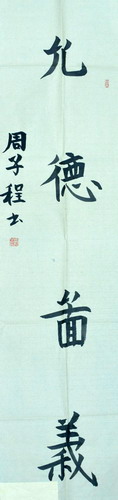 允德義
周子程书